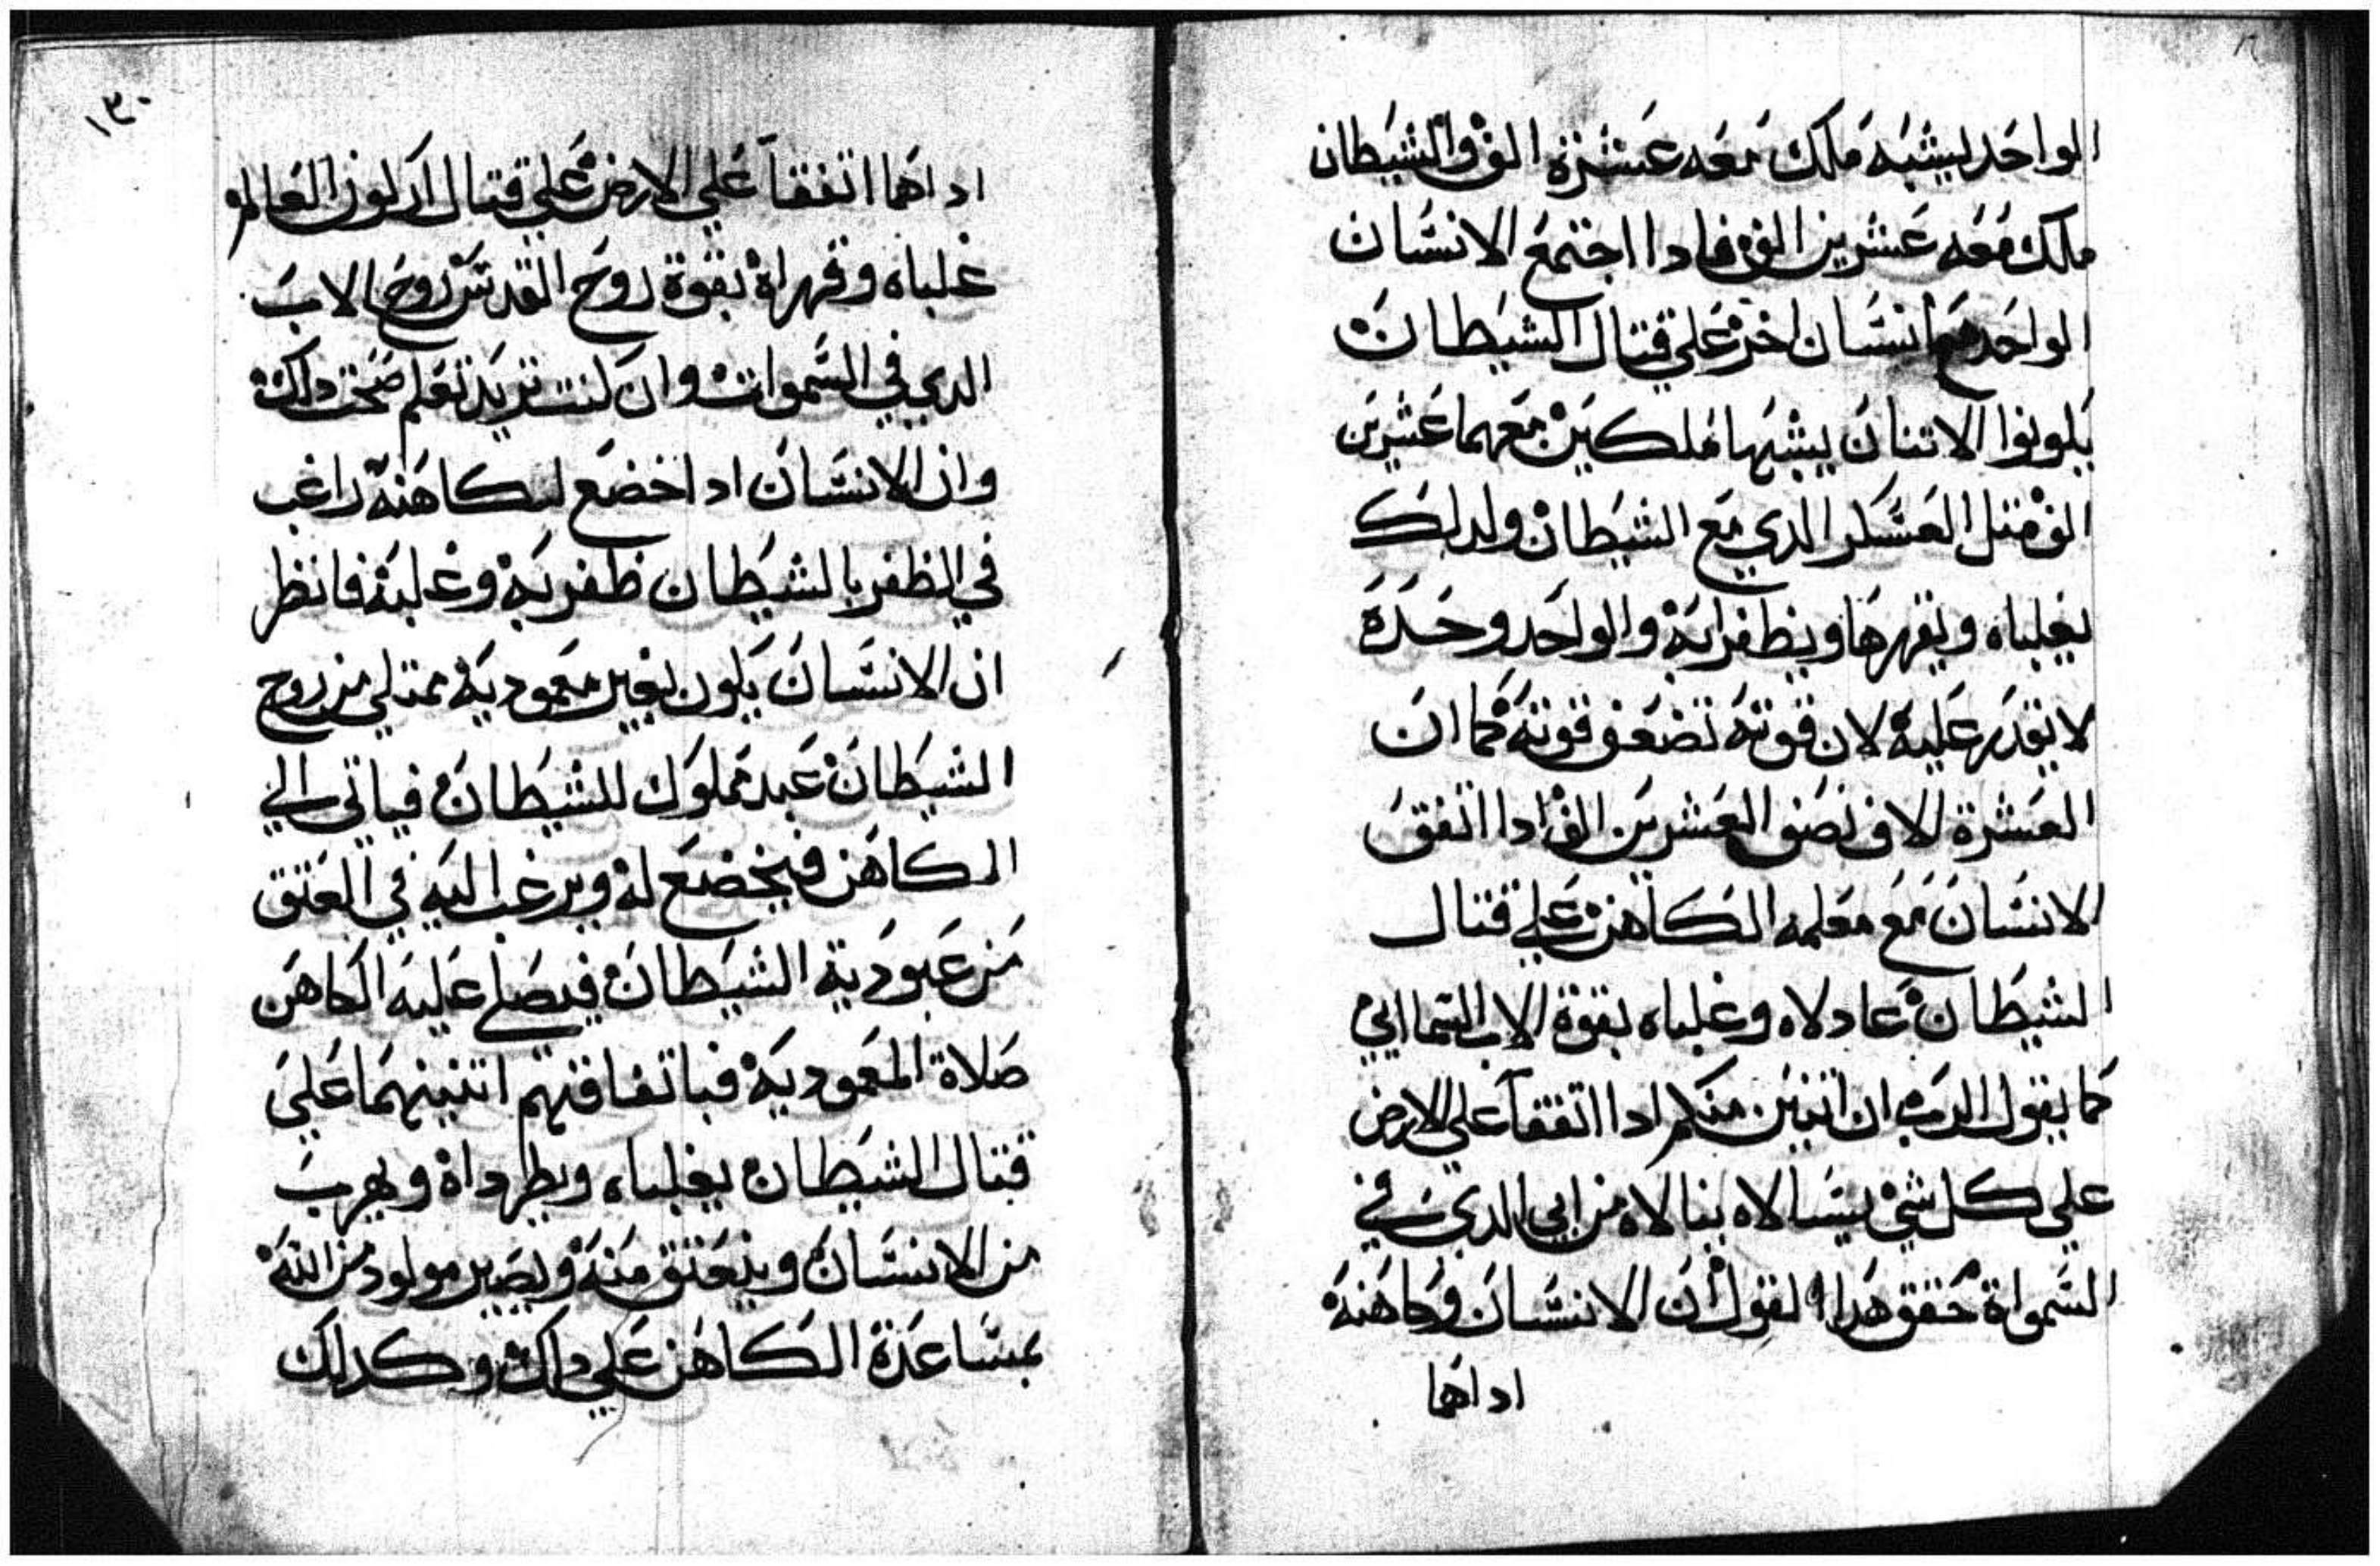 الواحد يشبه ملك معه عشرة الف والشيطان
ملك معه عشرين الف فادا اجتمع الانسان
الواحد مع انسان اخر علي قتال الشيطان
يكونوا الاتنان يشبها ملكين معهما عشرين
الف متل العسكر الدي مع الشيطان ولدلك
يغلباه ويقهرها ويظفرا به والواحد وحده
لا يقدر عليه لان قوته تضعف قوته كما ان
العشرة الاف نصف العشرين الف ادا اتفق
الانسان مع معلمه الكاهن علي قتال
الشيطان عادلاه وغلباه بقوة الاب السماايي
كما يقول الرب ان اتنين منكم ادا اتفقا علي الارض
علي كل شي يسالاه ينالاه من ابي الدي في
السمواة حقق هدا القول ان الانسان وكاهنه
اداهما
١٣٠
اداهما اتفقا علي الارض علي قتال اركون العالم
غلباه وقهراه بقوة روح القدس روح الاب
الدي في السموات وان كنت تريد تعلم صحت دلك
وان الانسان ادا خضع لكاهنه راغب
في الظفر بالشيطان ظفر به وغلبه فانظر
ان الانسان يكون بغير معموديه ممتلي من روح
الشيطان عبد مملوك للشيطان فياتي الي
الكاهن فيخضع له ويرغب اليه في العتق
من عبودية الشيطان فيصلي عليه الكاهن
صلاة المعموديه فباتفاقهم اتنينهما علي
قتال الشيطان يغلباه ويطرداه ويهرب
من الانسان وينعتق منه ويصير مولود من الله
بمساعدة الكاهن علي دلك وكدلك